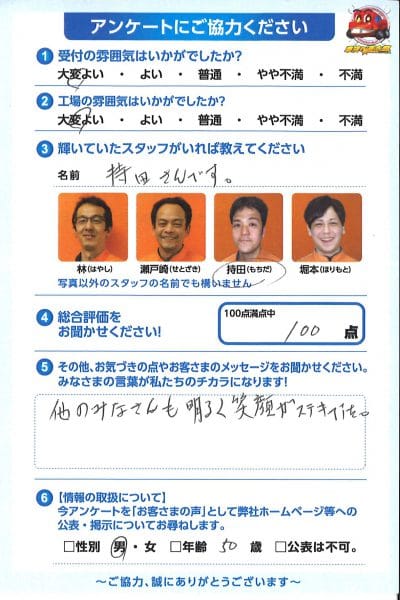 アンケートにご協力ください
1 受付の雰囲気はいかがでしたか?
大変よい ・ よい ・ 普通 ・ やや不満 ・ 不満
2 工場の雰囲気はいかがでしたか?
大変よい ・ よい ・ 普通 ・ やや不満 ・ 不満
3 輝いていたスタッフがいれば教えてください
名前 持田さんです。
林(はやし) 瀬戸崎(せとざき) 持田(もちだ) 堀本(ほりもと)
写真以外のスタッフの名前でも構いません
4 総合評価をお聞かせください!
100点満点中
100 点
5 その他、お気づきの点やお客さまのメッセージをお聞かせください。
みなさまの言葉が私たちのチカラになります!
他のみなさんも明るく笑顔がステキでした。
6 【情報の取扱について】
今アンケートを「お客さまの声」として弊社ホームページ等への
公表・掲示についてお尋ねします。
□性別 男・女 □年齢 50 歳 □公表は不可。
〜ご協力、誠にありがとうございます〜